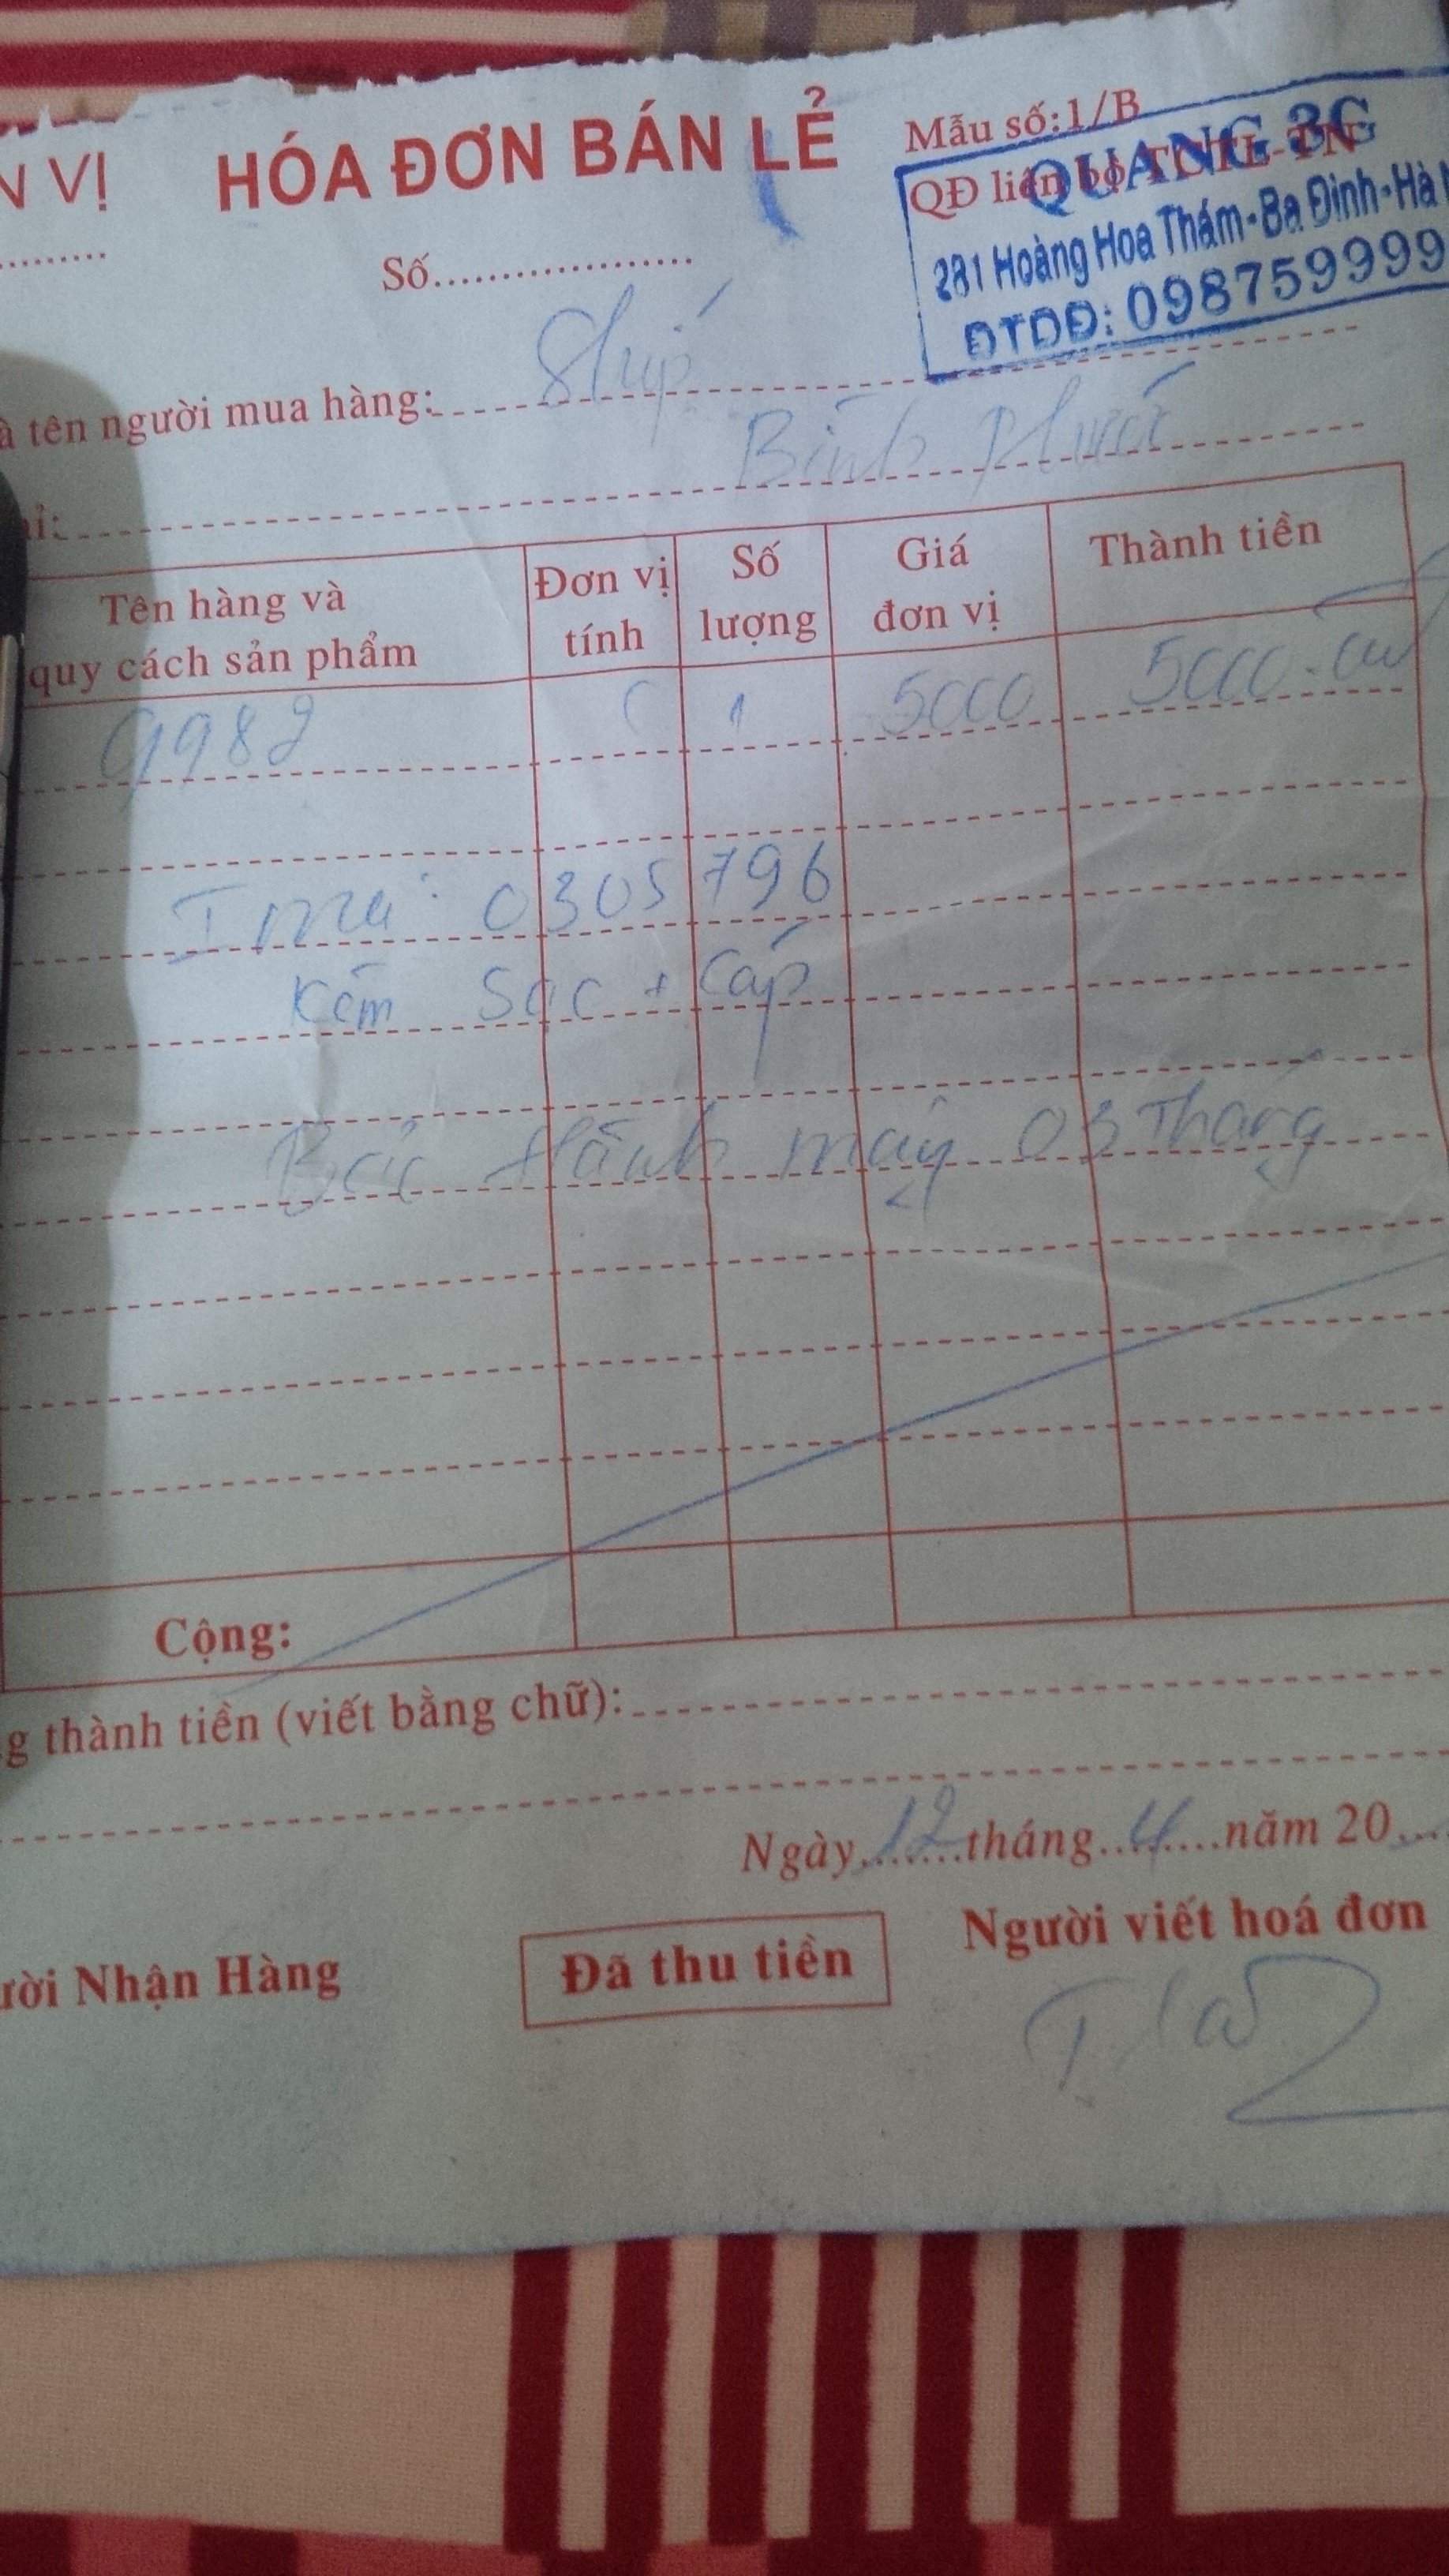 N VỊ
HÓA ĐƠN BÁN LẺ
Mẫu số:1/B
QĐ liên bộ TCTL-TN
QUANG 3G
281 Hoàng Hoa Thám-Ba Đình-Hà
ĐTDĐ: 098759999
Số
à tên người mua hàng:
ỉ: Bình Phước
Tên hàng và quy cách sản phẩm
Đơn vị tính
Số lượng
Giá đơn vị
Thành tiền
G1982 C 1 5000 5000
Imei: 0305796
Kèm Sạc + Cáp
Bảo Hành máy 03 Tháng
Cộng:
g thành tiền (viết bằng chữ):
Ngày 12 tháng 4 năm 20
ười Nhận Hàng
Đã thu tiền
Người viết hoá đơn